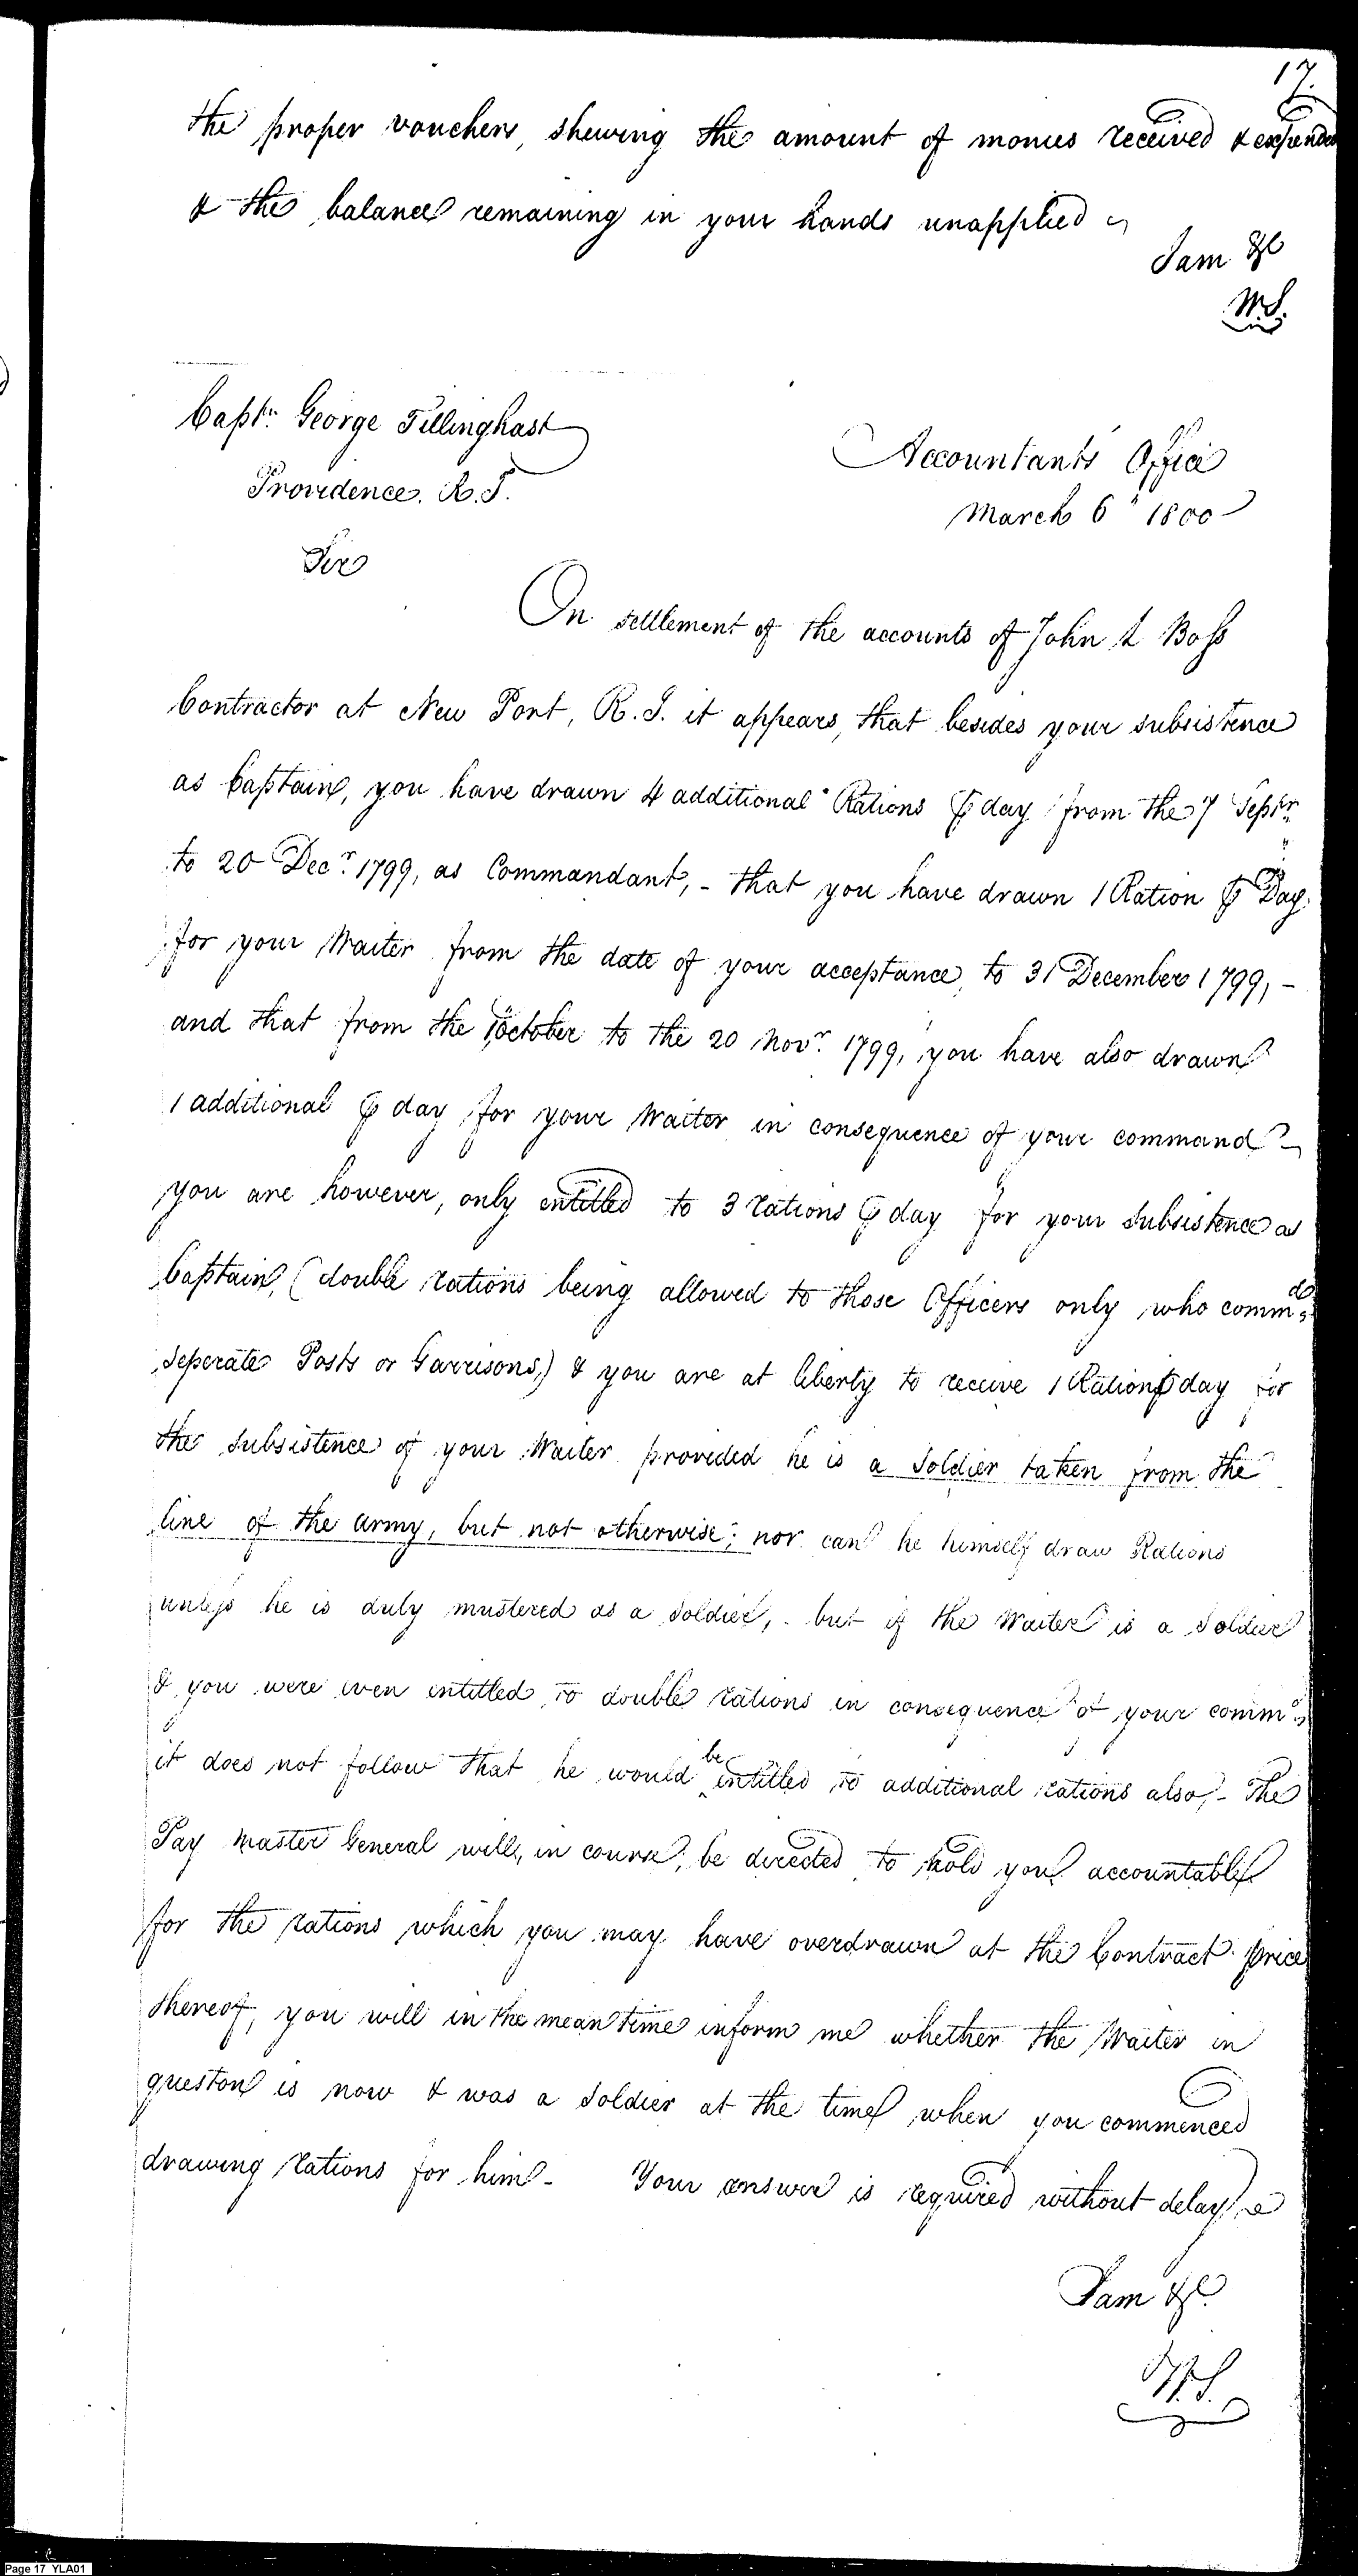 17.
the proper vouchers, shewing the amount of monies received & expended
& the balance remaining in your hands unapplied
I am &c
W.S.
Captn. George Tillinghast
Providence. R.I.
Accountants Office
March 6" 1800
Sir
On settlement of the accounts of John L Boss
Contractor at New Port, R.I. it appears, that besides your subsistence
as Captain, you have drawn 4 additional Rations ⅌ day from the 7 Septr.
to 20 Decr. 1799, as Commandant, - that you have drawn 1 Ration ⅌ Day
for your Waiter from the date of your acceptance, to 31 December 1799, -
and that from the 1 October to the 20 Novr. 1799, you have also drawn
1 additional ⅌ day for your Waiter in consequence of your command
you are however, only entitled to 3 rations ⅌ day for your subsistence as
Captain, (double rations being allowed to those Officers only who commd.
seperate Posts or Garrisons,) & you are at liberty to receive 1 Ration ⅌ day for
the subsistence of your Waiter provided he is a soldier taken from the
line of the army, but not otherwise; nor can he himself draw Rations
unless he is duly mustered as a soldier, - but if the Waiter is a soldier
& you were even intitled to double rations in consequence of your commd.
it does not follow that he would be intitled to additional rations also, - The
Pay Master General will, in course, be directed to hold you accountable
for the rations which you may have overdrawn at the Contract price
thereof, you will in the mean time inform me whether the Waiter in
queston is now & was a soldier at the time when you commenced
drawing rations for him - Your answer is required without delay
I am &c.
W.S.
Page 17 YLA01